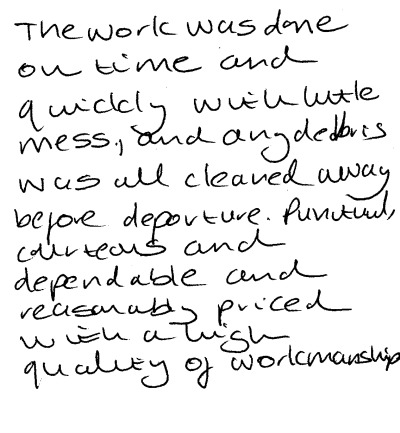 The work was done
on time and
quickly with little
mess, and any debris
was all cleared away
before departure. Punctual,
courteous and
dependable and
reasonably priced
with a high
quality of workmanship